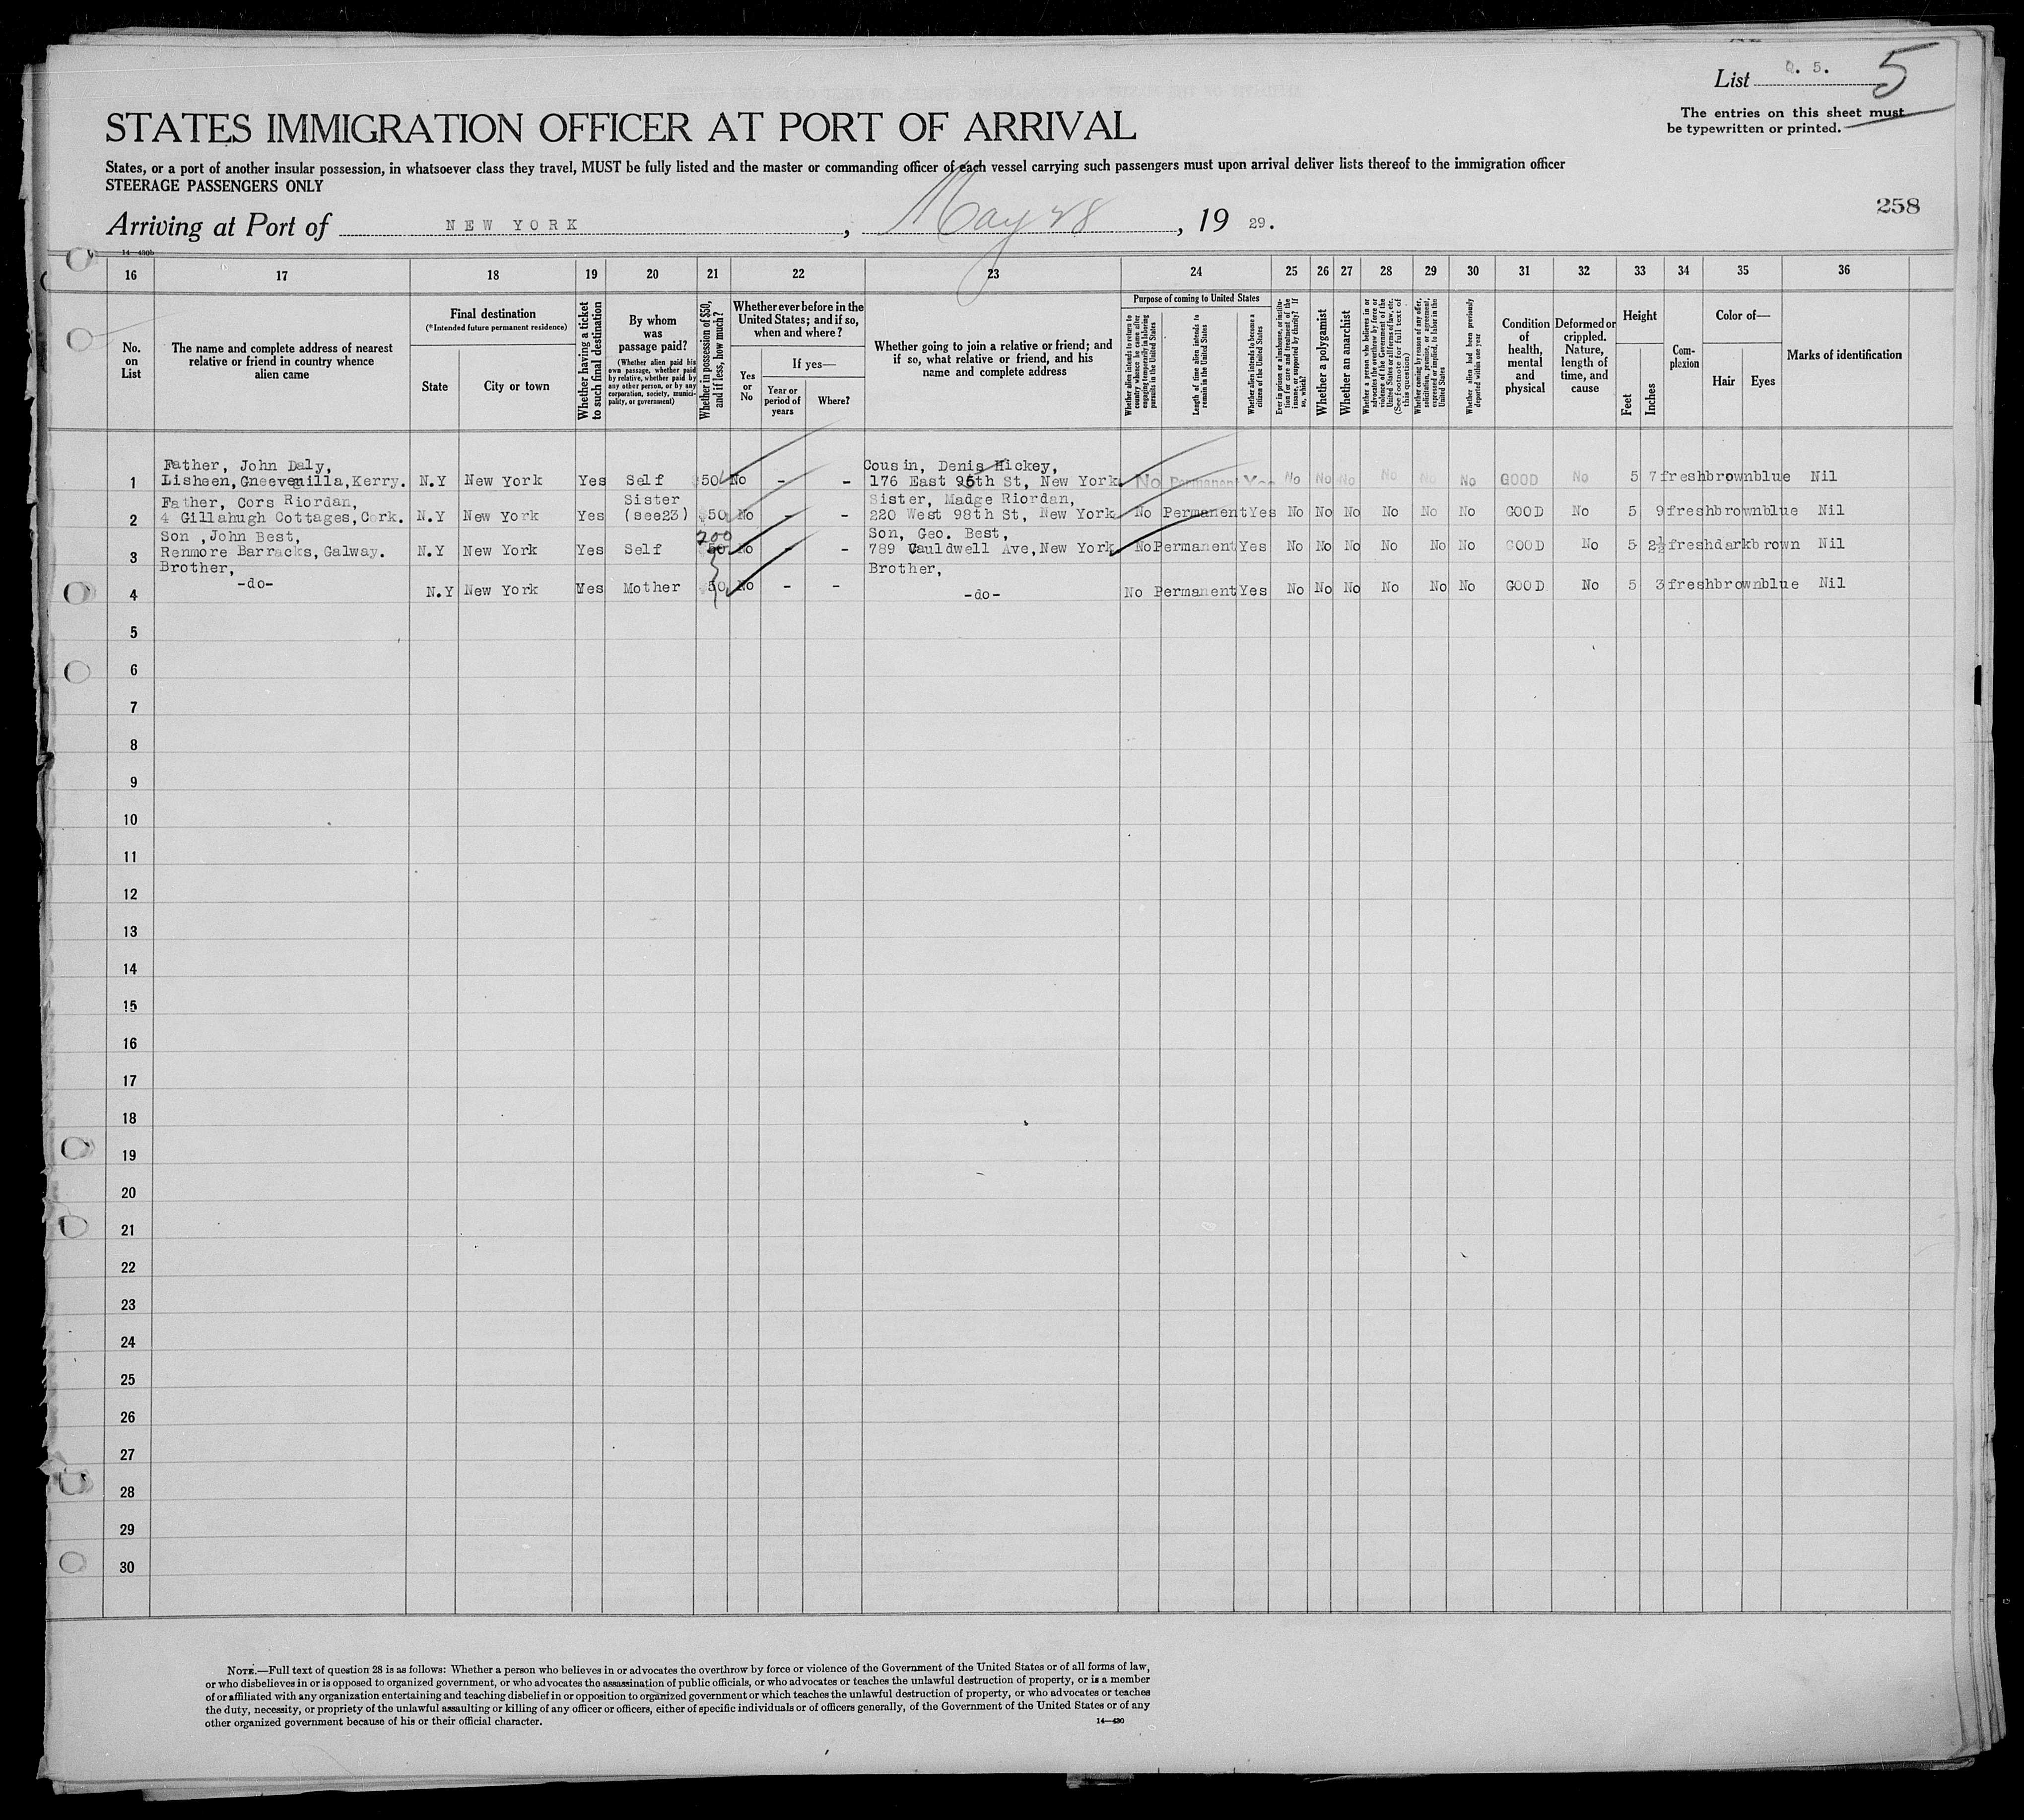 List Q. 5. 5
The entries on this sheet must
be typewritten or printed.
STATES IMMIGRATION OFFICER AT PORT OF ARRIVAL
States, or a port of another insular possession, in whatsoever class they travel, MUST be fully listed and the master or commanding officer of each vessel carrying such passengers must upon arrival deliver lists thereof to the immigration officer
STEERAGE PASSENGERS ONLY
258
Arriving at Port of NEW YORK, May 28, 19 29.
14—430b
16 17 18 19 20 21 22 23 24 25 26 27 28 29 30 31 32 33 34 35 36
No. on List
The name and complete address of nearest
relative or friend in country whence
alien came
Final destination
(*Intended future permanent residence)
State
City or town
Whether having a ticket
to such final destination
By whom
was
passage paid?
(Whether alien paid his
own passage, whether paid
by relative, whether paid by
any other person, or by any
corporation, society, munici-
pality, or government)
Whether in possession of $50,
and if less, how much?
Whether ever before in the
United States; and if so,
when and where?
Yes
or
No
If yes—
Year or
period of
years
Where?
Whether going to join a relative or friend; and
if so, what relative or friend, and his
name and complete address
Purpose of coming to United States
Whether alien intends to return to
country whence he came after
engaging temporarily in laboring
pursuits in the United States
Length of time alien intends to
remain in the United States
Whether alien intends to become a
citizen of the United States
Ever in prison or almshouse, or institu-
tion for care and treatment of the
insane, or supported by charity? If
so, which?
Whether a polygamist
Whether an anarchist
Whether a person who believes in or
advocates the overthrow by force or
violence of the Government of the
United States or all forms of law, etc.
(See footnote for full text of
this question)
Whether coming by reason of any offer,
solicitation, promise, or agreement,
expressed or implied, to labor in the
United States
Whether alien had been previously
deported within one year
Condition
of
health,
mental
and
physical
Deformed or
crippled.
Nature,
length of
time, and
cause
Height
Feet
Inches
Com-
plexion
Color of—
Hair
Eyes
Marks of identification
Father, John Daly, Cousin, Denis Hickey,
1 Lisheen, Gneeveguilla, Kerry. N.Y New York Yes Self 50 No - - 176 East 96th St, New York No Permanent Yes No No No No No No GOOD No 5 7 fresh brown blue Nil
Father, Cors Riordan, Sister Sister, Madge Riordan,
2 4 Gillahugh Cottages, Cork. N.Y New York Yes (see23) 50 No - - 220 West 98th St, New York No Permanent Yes No No No No No No GOOD No 5 9 fresh brown blue Nil
Son ,John Best, 200 Son, Geo. Best,
3 Renmore Barracks, Galway. N.Y New York Yes Self 50 No - - 789 Cauldwell Ave, New York No Permanent Yes No No No No No No GOOD No 5 2½ fresh dark brown Nil
Brother, Brother,
4 -do- N.Y New York Yes Mother 50 No - - -do- No Permanent Yes No No No No No No GOOD No 5 3 fresh brown blue Nil
5
6
7
8
9
10
11
12
13
14
15
16
17
18
19
20
21
22
23
24
25
26
27
28
29
30
NOTE.—Full text of question 28 is as follows: Whether a person who believes in or advocates the overthrow by force or violence of the Government of the United States or of all forms of law,
or who disbelieves in or is opposed to organized government, or who advocates the assassination of public officials, or who advocates or teaches the unlawful destruction of property, or is a member
of or affiliated with any organization entertaining and teaching disbelief in or opposition to organized government or which teaches the unlawful destruction of property, or who advocates or teaches
the duty, necessity, or propriety of the unlawful assaulting or killing of any officer or officers, either of specific individuals or of officers generally, of the Government of the United States or of any
other organized government because of his or their official character.
14—430